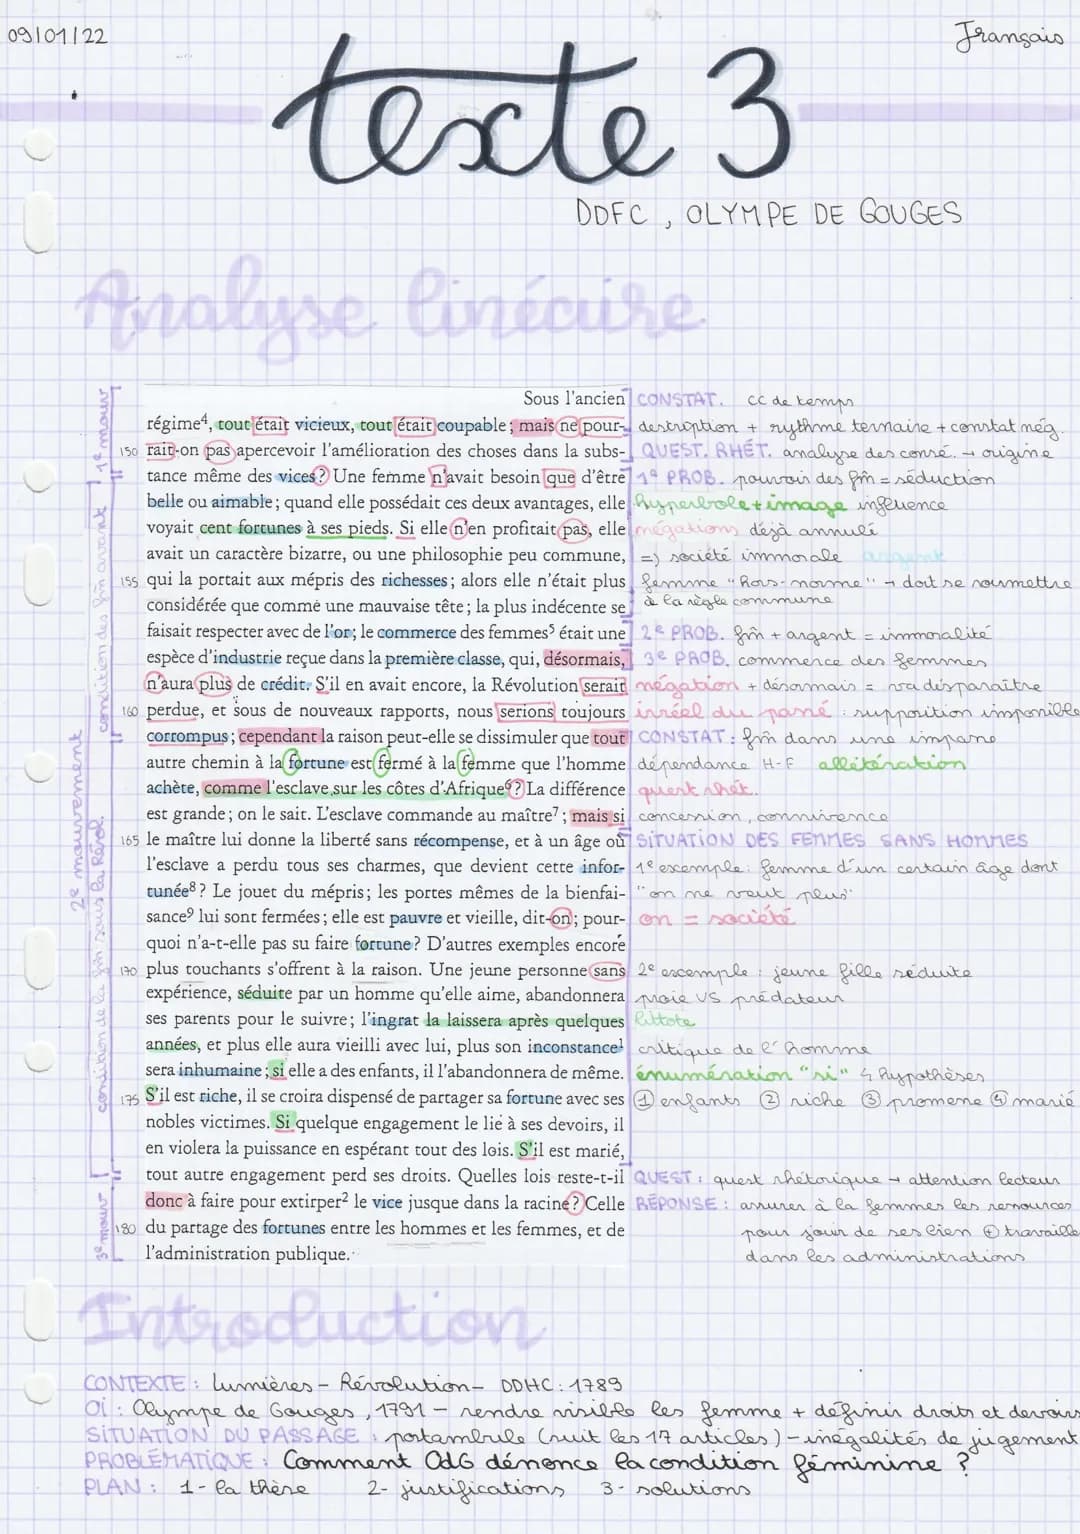 09/01/22
Français
texte 3
DDFC, OLYMPE DE GOUGES
Analyse linéaire
1e mouv
condition des fm avant
2e mouvement
condition de la fm sous la Révol.
3e mouv
Sous l'ancien
régime⁴, tout était vicieux, tout était coupable ; mais ne pour-
150 rait-on pas apercevoir l'amélioration des choses dans la subs-
tance même des vices ? Une femme n'avait besoin que d'être
belle ou aimable ; quand elle possédait ces deux avantages, elle
voyait cent fortunes à ses pieds. Si elle n'en profitait pas, elle
avait un caractère bizarre, ou une philosophie peu commune,
155 qui la portait aux mépris des richesses ; alors elle n'était plus
considérée que comme une mauvaise tête ; la plus indécente se
faisait respecter avec de l'or ; le commerce des femmes⁵ était une
espèce d'industrie reçue dans la première classe, qui, désormais,
n'aura plus de crédit. S'il en avait encore, la Révolution serait
160 perdue, et sous de nouveaux rapports, nous serions toujours
corrompus ; cependant la raison peut-elle se dissimuler que tout
autre chemin à la fortune est fermé à la femme que l'homme
achète, comme l'esclave sur les côtes d'Afrique⁶ ? La différence
est grande ; on le sait. L'esclave commande au maître⁷ ; mais si
165 le maître lui donne la liberté sans récompense, et à un âge où
l'esclave a perdu tous ses charmes, que devient cette infor-
tunée⁸ ? Le jouet du mépris ; les portes mêmes de la bienfai-
sance⁹ lui sont fermées ; elle est pauvre et vieille, dit-on ; pour-
quoi n'a-t-elle pas su faire fortune ? D'autres exemples encore
170 plus touchants s'offrent à la raison. Une jeune personne sans
expérience, séduite par un homme qu'elle aime, abandonnera
ses parents pour le suivre ; l'ingrat la laissera après quelques
années, et plus elle aura vieilli avec lui, plus son inconstance¹
sera inhumaine ; si elle a des enfants, il l'abandonnera de même.
175 S'il est riche, il se croira dispensé de partager sa fortune avec ses
nobles victimes. Si quelque engagement le lie à ses devoirs, il
en violera la puissance en espérant tout des lois. S'il est marié,
tout autre engagement perd ses droits. Quelles lois reste-t-il
donc à faire pour extirper² le vice jusque dans la racine ? Celle
180 du partage des fortunes entre les hommes et les femmes, et de
l'administration publique.
CONSTAT. CC de temps
destruption + rythme ternaire + constat nég.
QUEST. RHÉT. analyse des consé. → origine
1e PROB. pouvoir des fm = séduction
hyperbole + image influence
négations déjà annulé
=) société immorale argent
femme "hors-norme" → doit se soumettre
à la règle commune
2e PROB. fm + argent = immoralité
3e PROB. commerce des femmes
négation + désormais = va disparaître
irréel du passé : supposition impossible
CONSTAT : fm dans une impasse
dépendance H-F allitération
quest rhét.
concession, connivence
SITUATION DES FEMMES SANS HOMMES
1e exemple : femme d'un certain âge dont
"on ne veut plus"
on = société
2e exemple : jeune fille séduite
proie VS prédateur
littote
critique de l'homme
énumération "si" 4 hypothèses
① enfants ② riche ③ promesse ④ marié
QUEST : quest rhétorique → attention lecteur
RÉPONSE : assurer à la femmes les ressources
pour jouir de ses bien ⊕ travaille
dans les administrations
Introduction
CONTEXTE : Lumières - Révolution - DDHC : 1789
OI : Olympe de Gouges, 1791 - rendre visible les femme + définir droits et devoirs
SITUATION DU PASSAGE : postambule (suit les 17 articles) - inégalités de jugement
PROBLÉMATIQUE : Comment OdG dénonce la condition féminine ?
PLAN : 1- la thèse 2- justifications 3- solutions